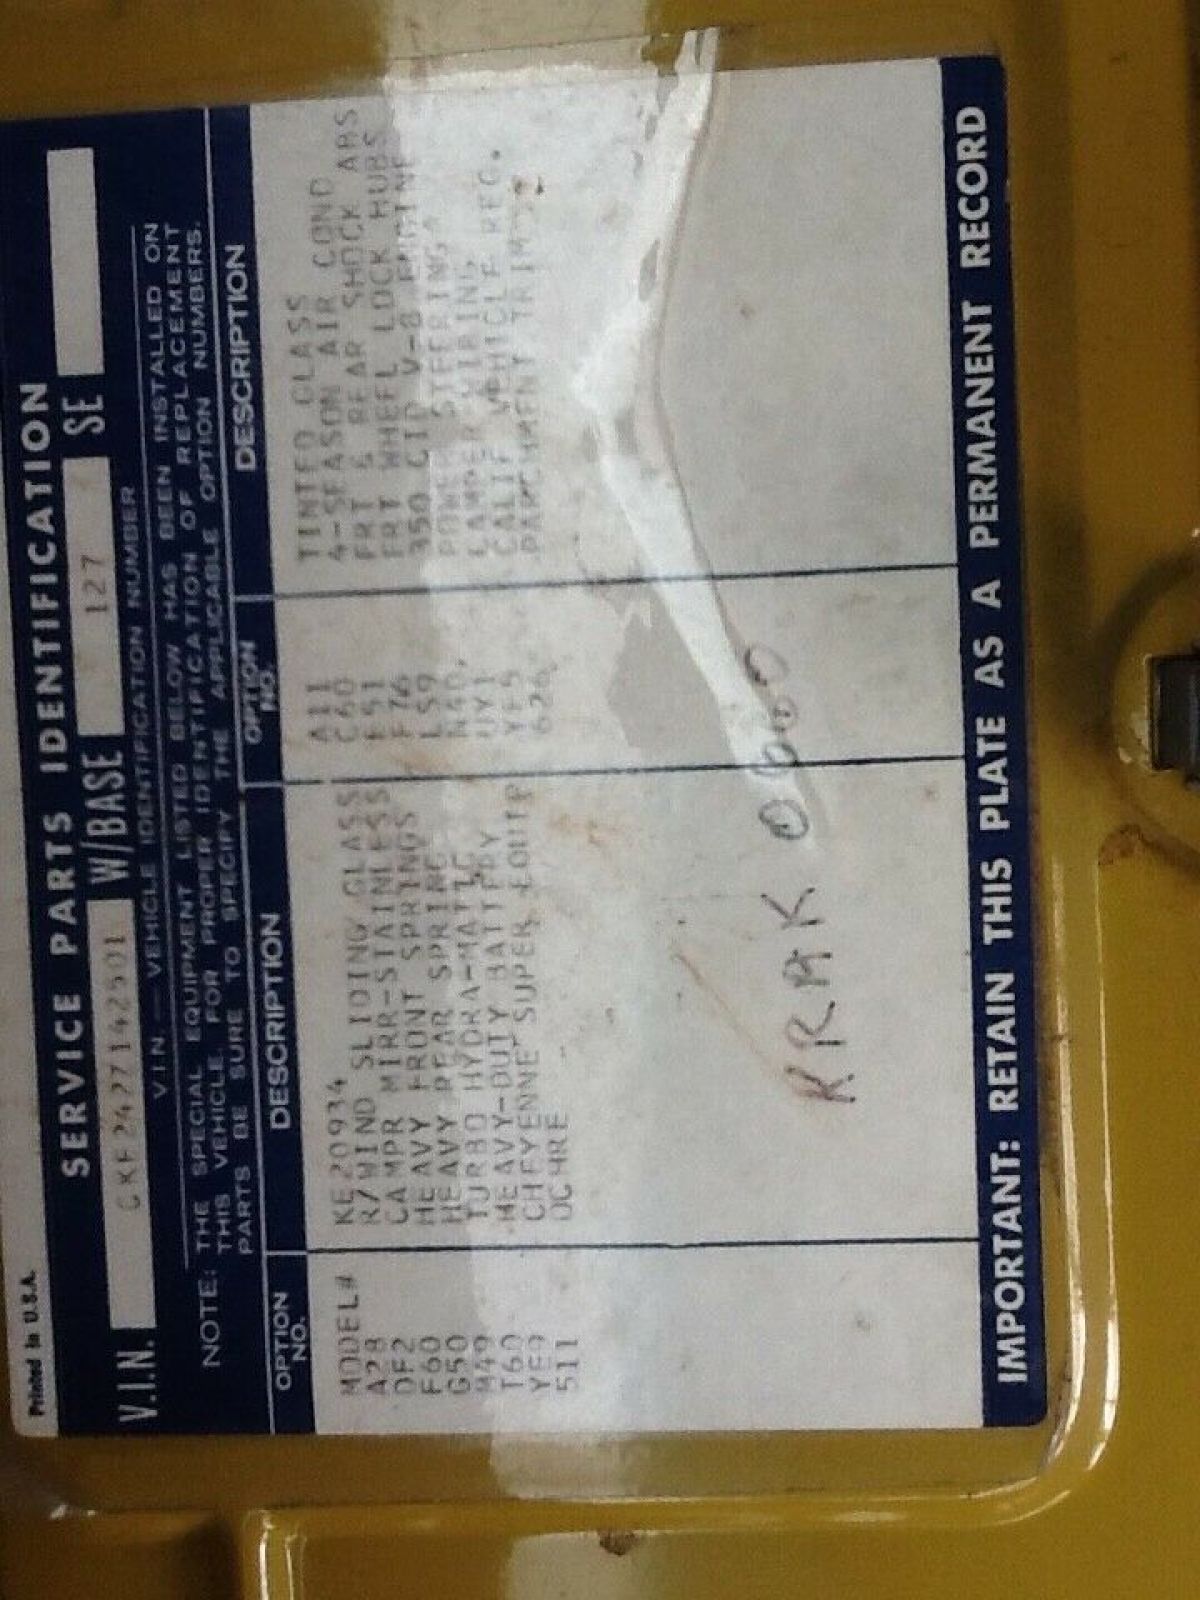 Printed in U.S.A.
SERVICE PARTS IDENTIFICATION
V.I.N. CKE242Z142501 W/BASE 127 SE
V.I.N. — VEHICLE IDENTIFICATION NUMBER
NOTE: THE SPECIAL EQUIPMENT LISTED BELOW HAS BEEN INSTALLED ON
THIS VEHICLE. FOR PROPER IDENTIFICATION OF REPLACEMENT
PARTS BE SURE TO SPECIFY THE APPLICABLE OPTION NUMBERS.
OPTION NO. DESCRIPTION OPTION NO. DESCRIPTION
MODEL# KE20934 A11 TINTED GLASS
A28 R/WIND SLIDING GLASS C60 4-SEASON AIR COND
DF2 CAMPR MIRR-STAINLESS E51 FRT & REAR SHOCK ABS
F60 HEAVY FRONT SPRINGS F76 FRT WHEEL LOCK HUBS
G50 HEAVY REAR SPRING LS9 350 CID V-8 ENGINE
M49 TURBO HYDRA-MATIC N40 POWER STEERING
T60 HEAVY-DUTY BATTERY UY1 CAMPER WIRING
YE9 CHEYENNE SUPER EQUIP YF5 CALIF VEHICLE REG.
511 OCHRE PARCHMENT TRIM
KRAK
IMPORTANT: RETAIN THIS PLATE AS A PERMANENT RECORD